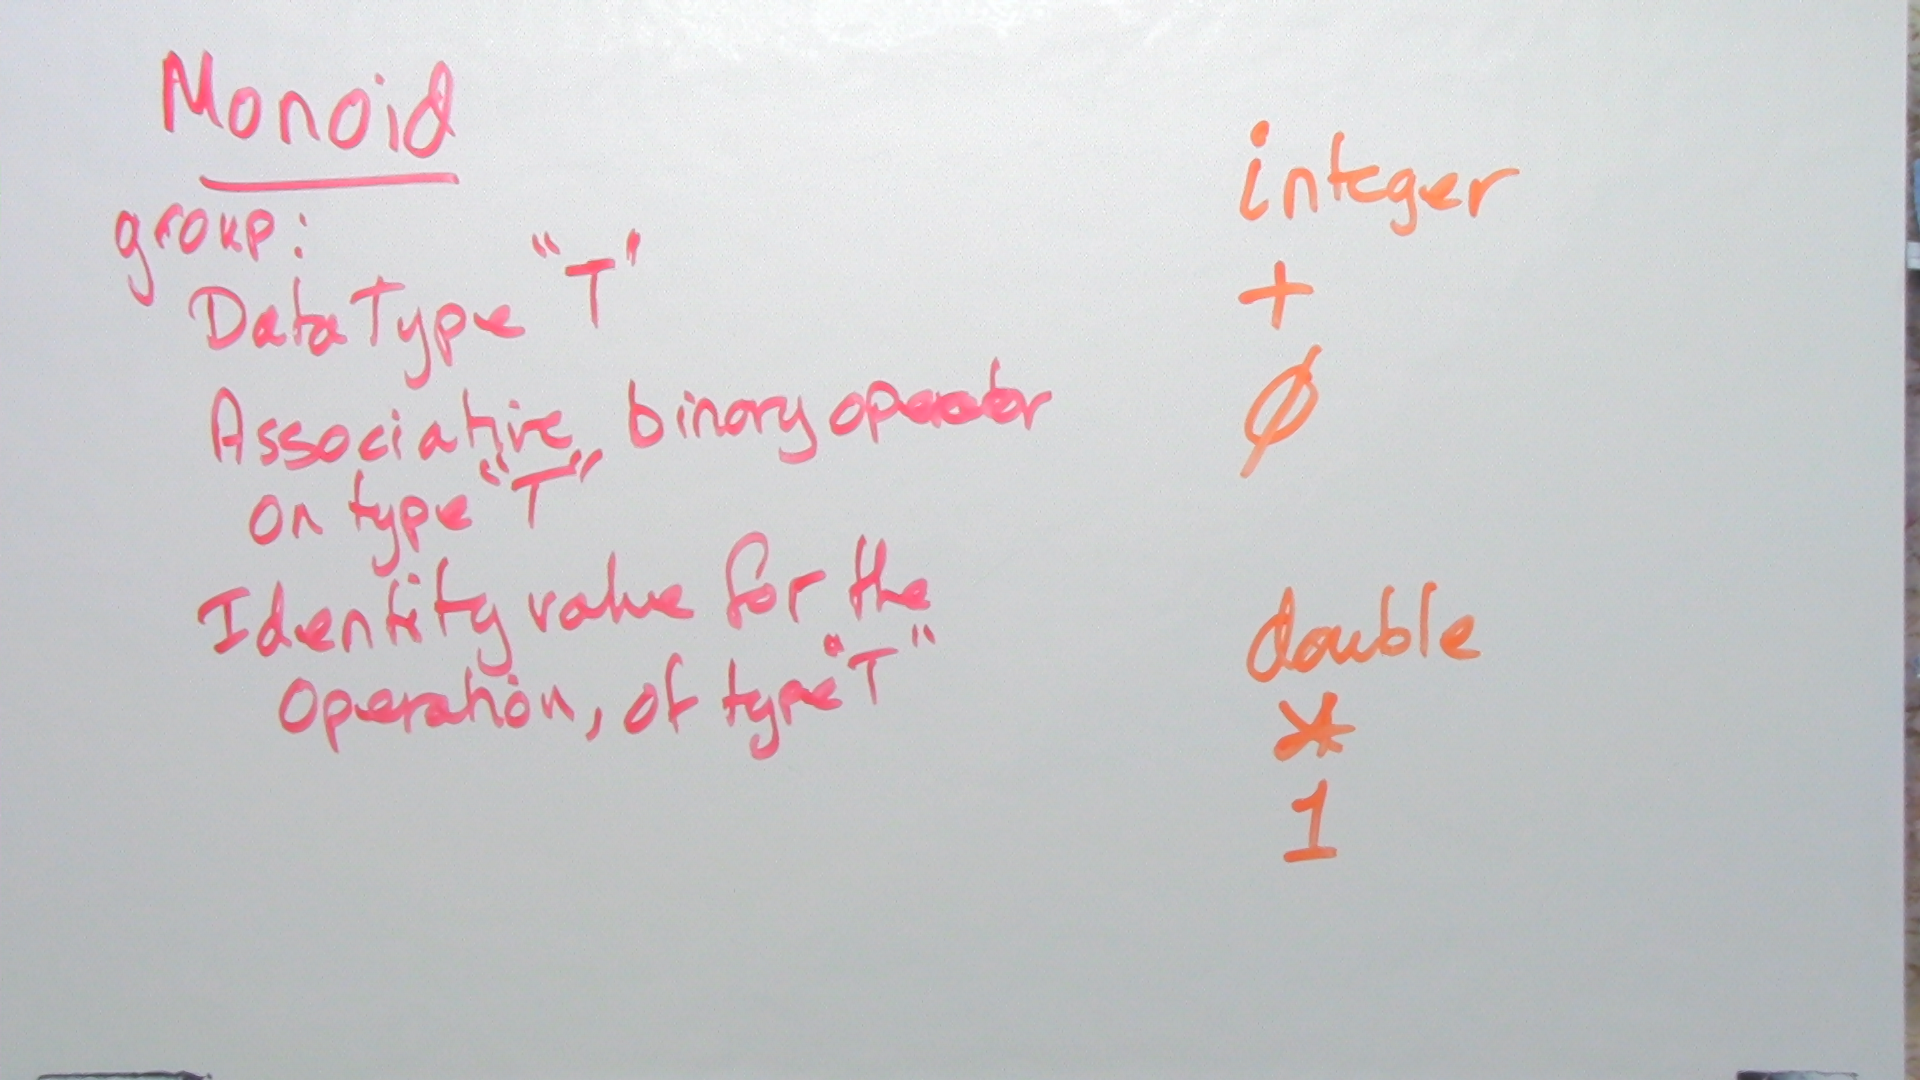 Monoid
group:
Data Type "T"
Associative, binary operator
on type "T"
Identity value for the
operation, of type "T"
integer
+
Ø
double
*
1